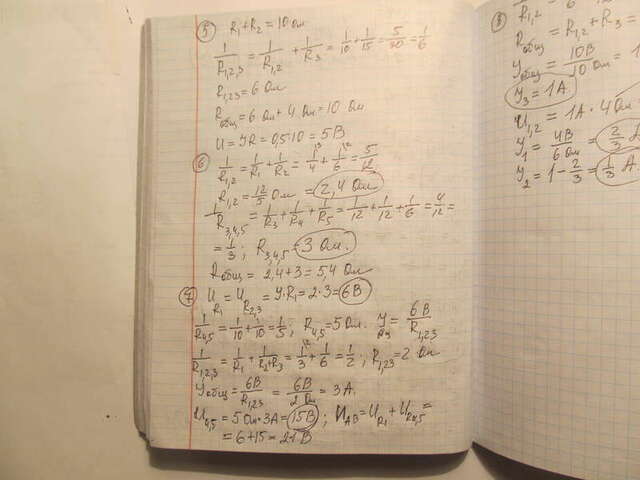 5) R₁+R₂=10 Ом
1/R₁,₂,₃ = 1/R₁,₂ + 1/R₃ = 1/10 + 1/15 = 5/30 = 1/6
R₁,₂₃=6 Ом
Rобщ=6 Ом+4 Ом=10 Ом
U=УR=0,5·10=5В
6) 1/R₁,₂ = 1/R₁ + 1/R₂ = 1/4 + 1/6 = 5/12
R₁,₂ = 12/5 Ом = 2,4 Ом
1/R₃,₄,₅ = 1/R₃ + 1/R₄ + 1/R₅ = 1/12 + 1/12 + 1/6 = 4/12 =
= 1/3; R₃,₄,₅=3 Ом.
Rобщ=2,4+3=5,4 Ом
7) U R₁ = U R₂,₃ = У·R₁=2·3=6В
1/R₄,₅ = 1/10 + 1/10 = 1/5; R₄,₅=5 Ом. У = 6В/R₁,₂₃
1/R₁,₂,₃ = 1/R₁ + 1/R₂+R₃ = 1/3 + 1/6 = 1/2; R₁,₂₃=2 Ом
Уобщ = 6В/R₁,₂₃ = 6В/2 Ом = 3А.
U₄,₅=5 Ом·3А=15В; UАВ=UR₁+UR₄,₅=
=6+15=21 В
8)
R₁,₂
Rобщ=R₁,₂+R₃=
Уобщ = 10В/10 Ом =
У₃=1А
U₁,₂=1А·4 Ом
У₁ = 4В/6 Ом = 2/3
У₂=1-2/3 = 1/3 А.